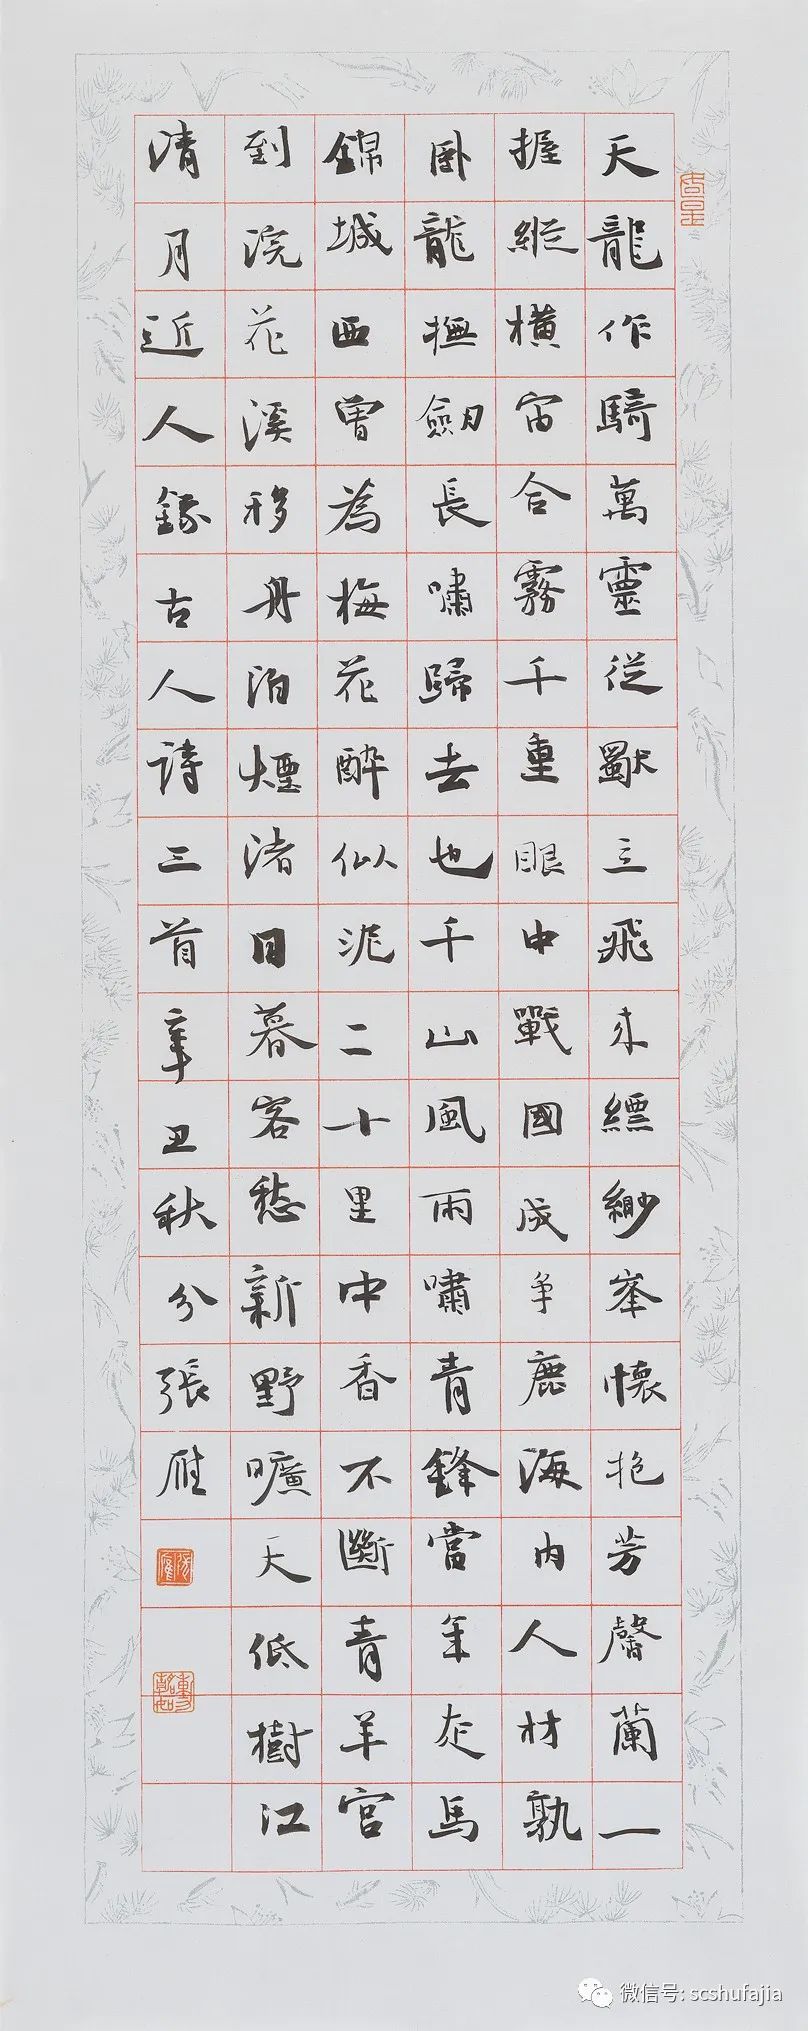 天龍作騎萬靈從獨立飛來縹緲峯懷抱芳馨蘭一
握縱橫宙合霧千重眼中戰國成争鹿海內人材孰
卧龍撫劍長嘯歸去也千山風雨嘯青鋒當年走馬
錦城西曾為梅花醉似泥二十里中香不斷青羊宮
到浣花溪移舟泊煙渚日暮客愁新野曠天低樹江
清月近人錄古人詩三首辛丑秋分張雁
微信号: scshufajia